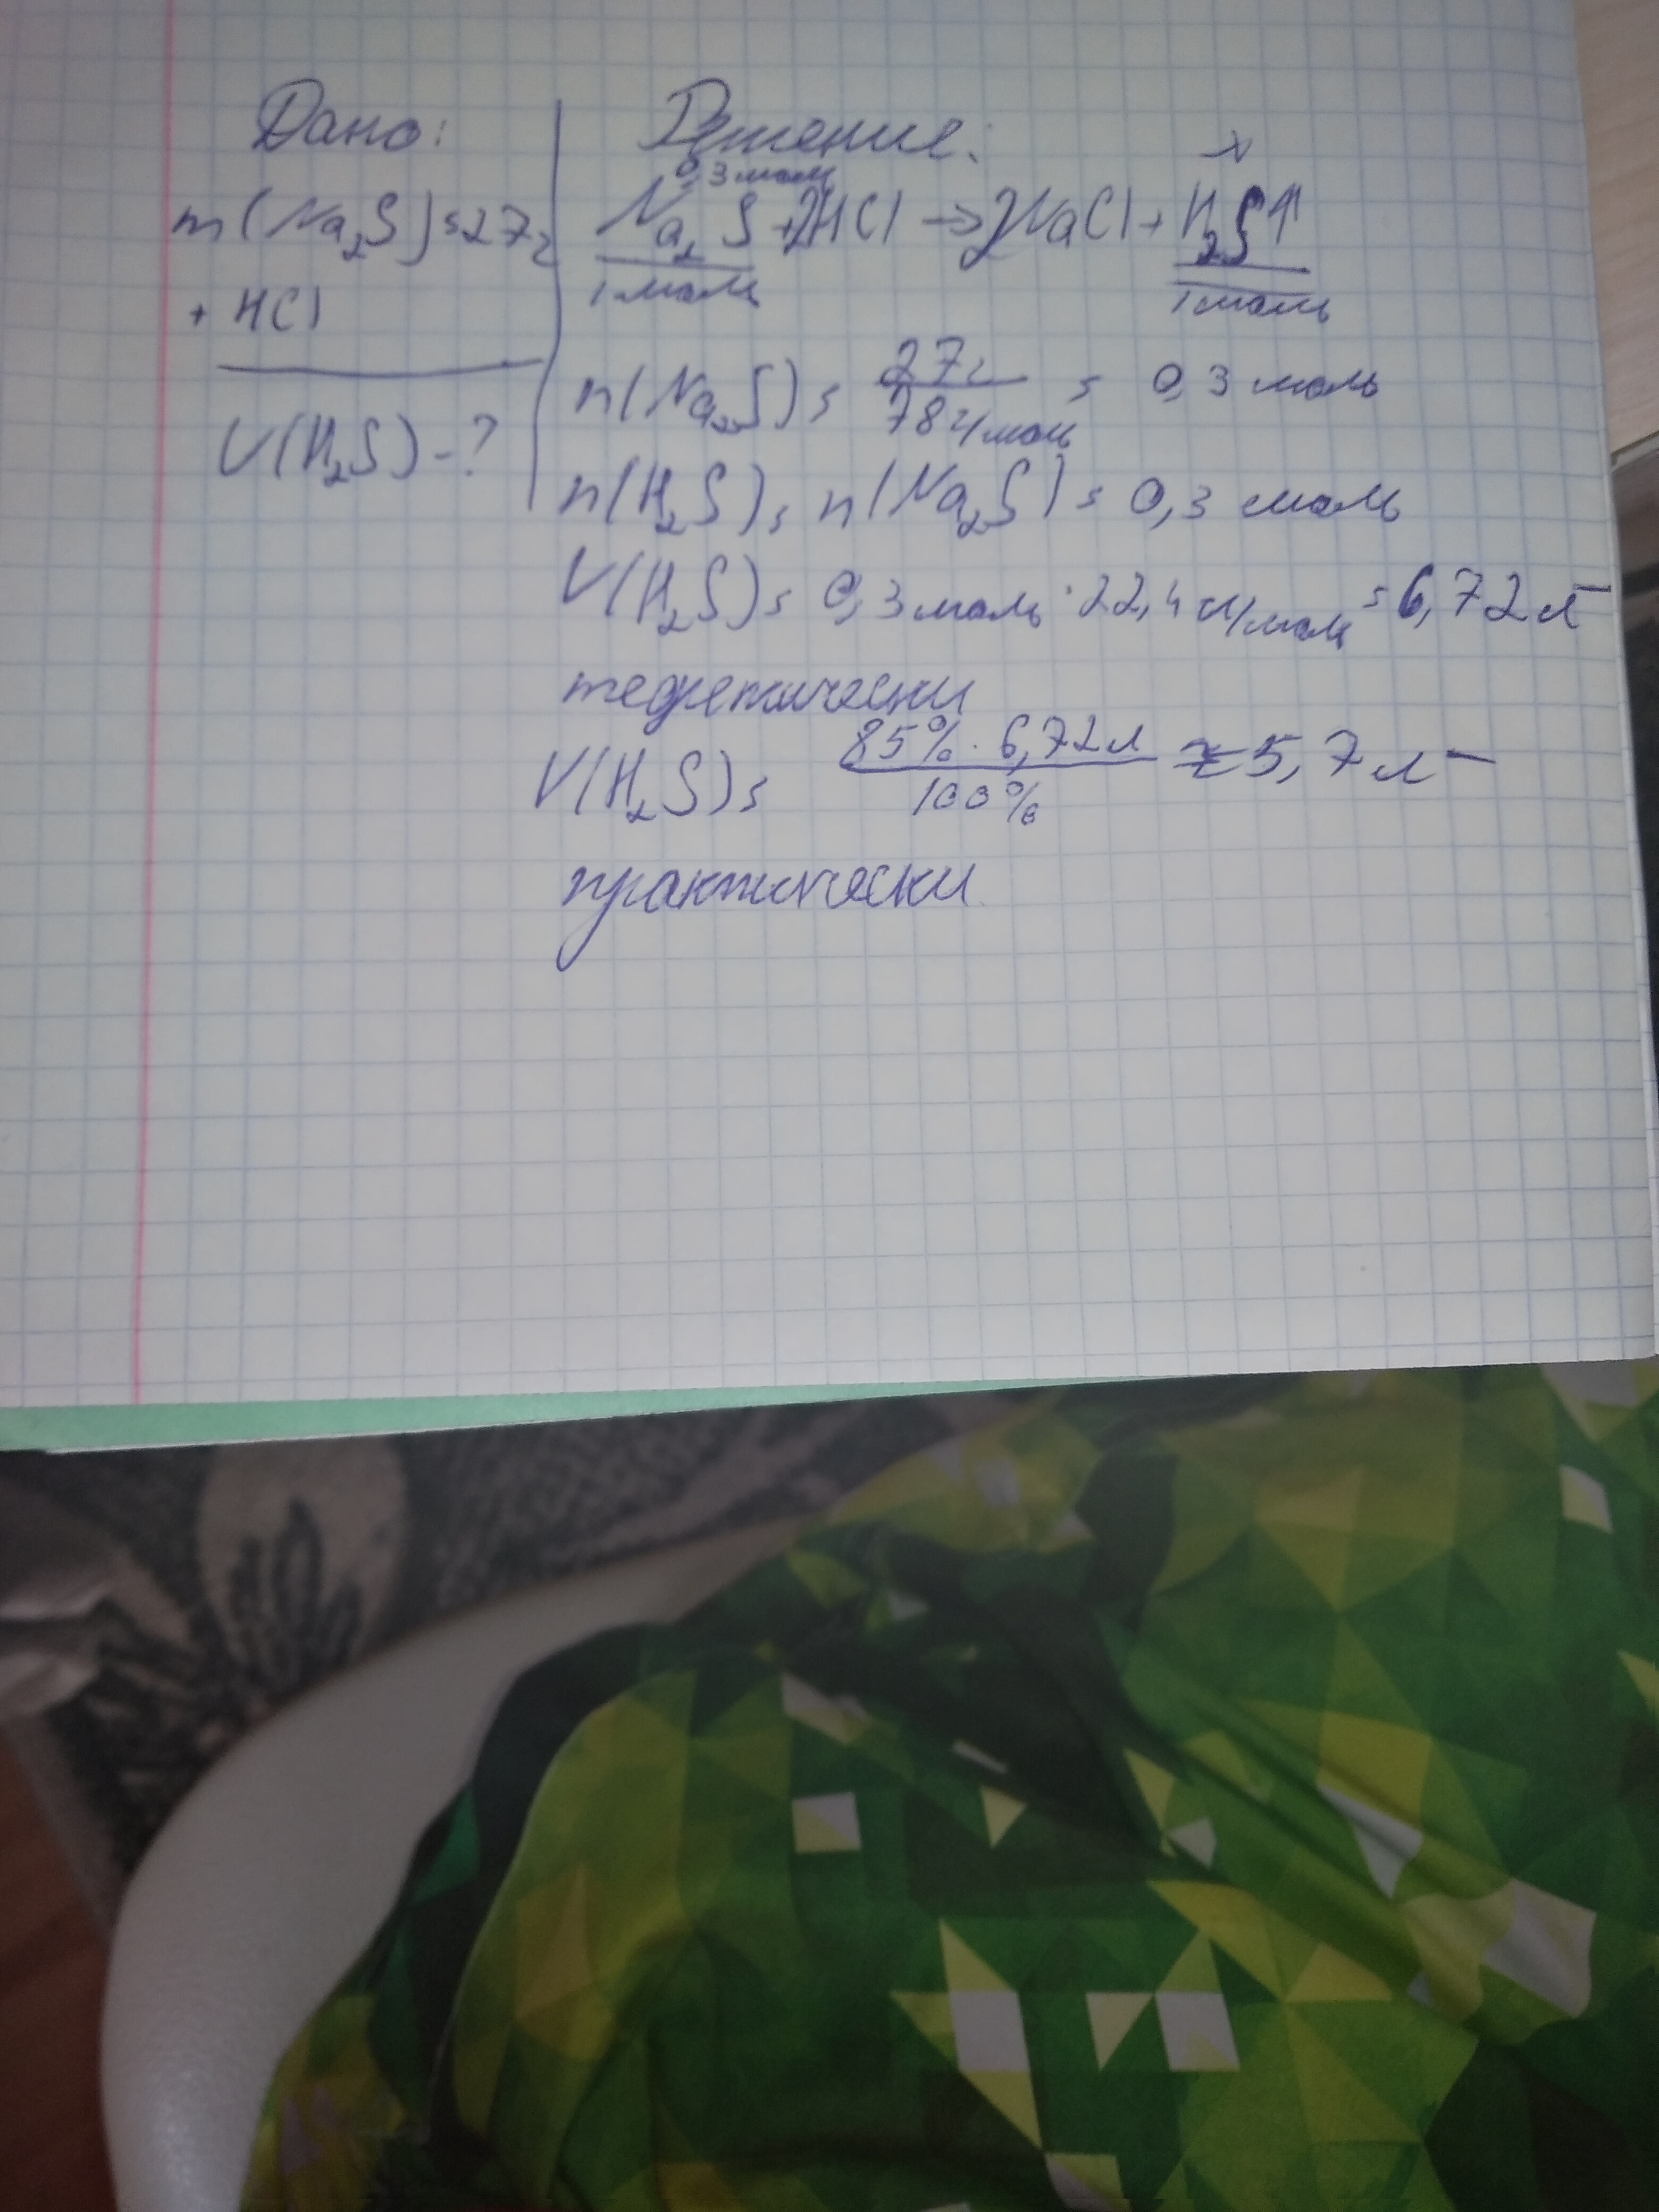 Дано:
m(Na₂S)=27г
+ HCl
V(H₂S)-?
Решение:
0,3 моль x
Na₂S+2HCl→2NaCl+H₂S↑
1 моль 1 моль
n(Na₂S)= 27г/78 г/моль = 0,3 моль
n(H₂S)= n(Na₂S)= 0,3 моль
V(H₂S)= 0,3 моль·22,4 л/моль =6,72л
теоретически
V(H₂S)= 85%·6,72л/100% ≈5,7л
практически